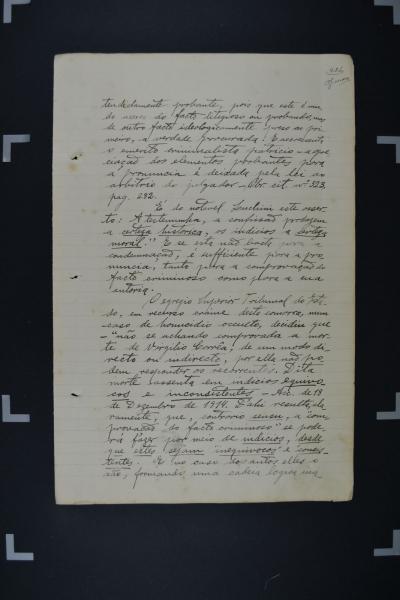 tendidamente probante, pois que este é um
do acaso do facto litigioso ou probando, mas
de outro facto ideologicamente preso ao pri-
meiro, a verdade procurada! E accrescenta
o emerito criminalista patricio - a apre-
ciação dos elementos probantes para
a pronuncia é deixada pela lei ao
arbitrio do julgador - Obr. cit. nº 323,
pag. 292.
É do notavel Lucchini este asser-
to: "A testemunha, a confissão produzem
a certeza historica, os indicios a certeza
moral." E se esta não basta para a
condemnação, é sufficiente para a pro-
nuncia, tanto para a comprovação do
facto criminoso como para a sua
autoria.
O egregio Superior Tribunal do Esta-
do, em recurso crime desta comarca, num
caso de homicidio occulto, decidiu que
- "não se achando comprovada a mor-
te de Vergilio Corrêa, de um modo di-
recto ou indirecto, por ella não po-
dem responder os recorrentes. Dita
morte assenta em indicios equivo-
cos e inconsistentes - Ac. de 18
de Dezembro de 1914. D'ahi resulta, cla-
ramente, que, contrario sensu, a com-
provação do facto criminoso se pode-
rá fazer por meio de indicios, desde
que elles sejam "inequivocos" e "consis-
tentes". E no caso dos autos elles o
são, formando uma cadeia logica